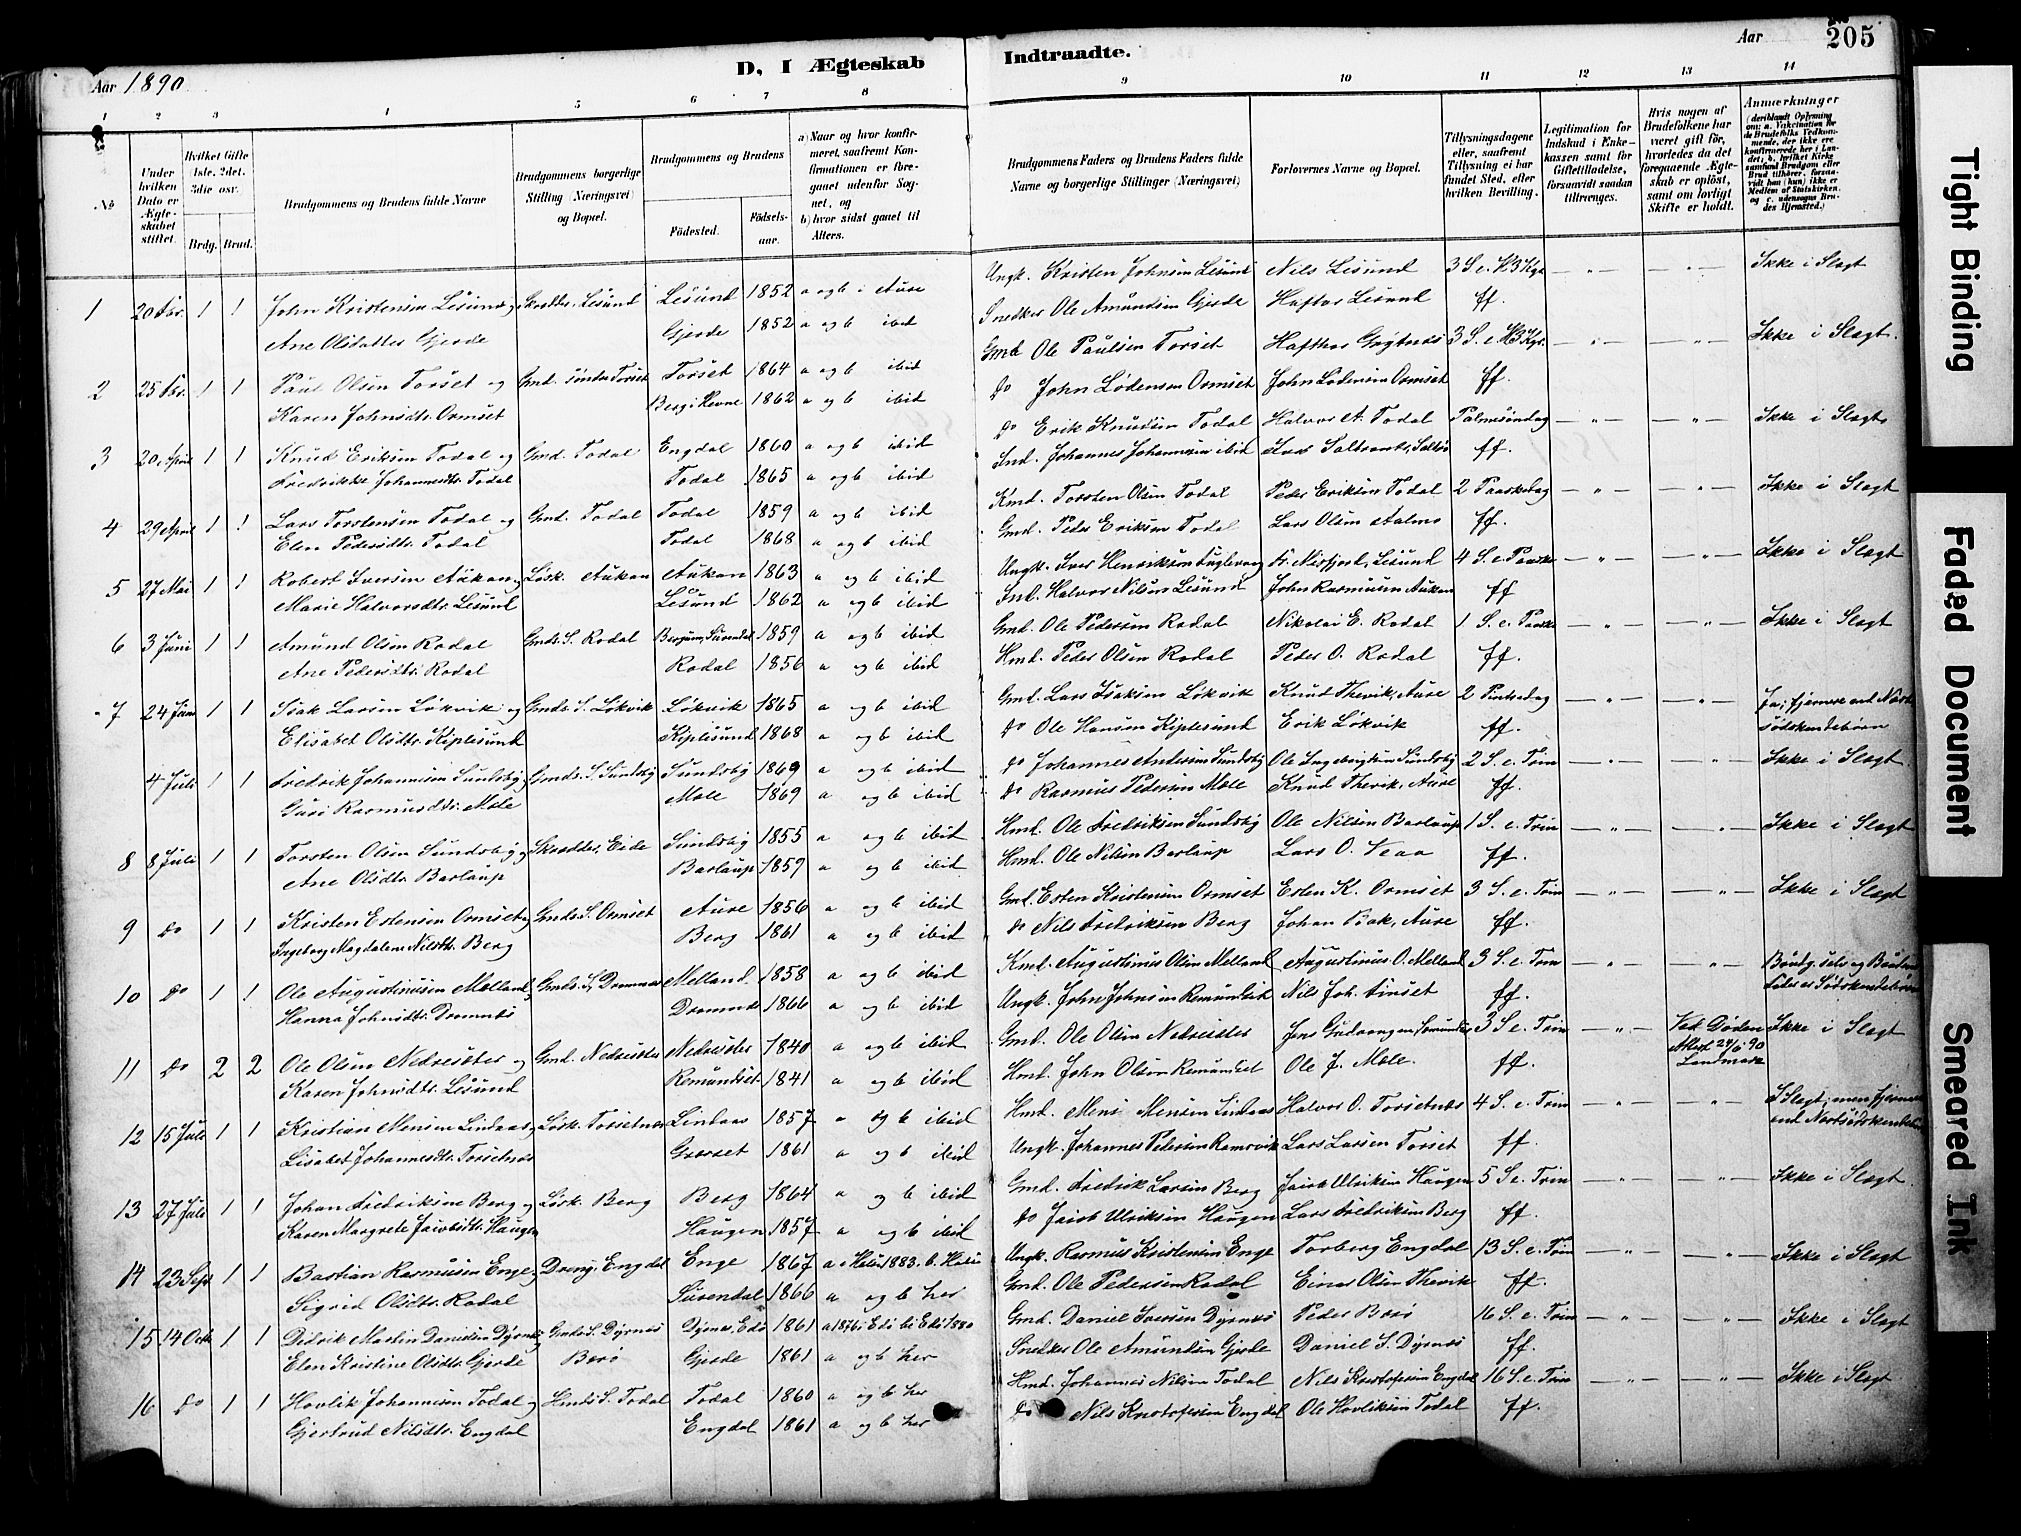 Aar 1890.
D, I Ægteskab
Indtraadte.
Aar
205
1 2 3 4 5 6 7 8 9 10 11 12 13 14
No
Under hvilken Dato er Ægteskabet stiftet.
Hvilket Gifte (1ste, 2det, 3die osv.)
Brdg. Brud.
Brudgommens og Brudens fulde Navne
Brudgommens borgerlige Stilling (Næringsvei) og Bopæl.
Brudgommens og Brudens
Födested.
Födselsaar.
a) Naar og hvor konfirmeret, saafremt Konfirmationen er foregaaet udenfor Sognet, og
b) hvor sidst gaaet til Alters.
Brudgommens Faders og Brudens Faders fulde Navne og borgerlige Stillinger (Næringsvei)
Forlovernes Navne og Bopæl.
Tillysningsdagene eller, saafremt Tillysning ei har fundet Sted, efter hvilken Bevilling.
Legitimation for Indskud i Enkekassen samt for Giftetilladelse, forsaavidt saadan tiltrænges.
Hvis nogen af Brudefolkene har været gift för, hvorledes da det foregaaende Ægteskab er oplöst, samt om lovligt Skifte er holdt.
Anmærkninger
(deriblandt Oplysning om: a. Vakcination for de Brudefolks Vedkommende, der ikke ere konfirmerede her i Landet; b. hvilket Kirkesamfund Brudgom eller Brud tilhörer, forsaavidt han (hun) ikke er Medlem af Statskirken, og c. udensogns Brudes Hjemsted.)
1 20 Fbr. 1 1 John Kristensen Lesund og Skrædder, Lesund Lesund 1852 a og b i Aure Ungk. Kristen Johnsen Lesund Nils Lesund 3 S. e. H3Kgr Ikke i Slægt
Ane Olsdatter Gjerde Gjerde 1852 a og b ibid Snedker Ole Amundsen Gjerde Haftor Lesund ff.
2 25 Fbr. 1 1 Paul Olsen Torset og Gmd. sönder Torset Torset 1864 a og b ibid Gmd Ole Paulsen Torset Hafthor 3 S. e H3Kgr. Ikke i Slægt.
Karen Johnsdtr. Ormset Berg i Hevne 1862 a og b ibid do John Lödensen Ormset John Lödensen Ormset ff.
3 20 April 1 1 Knud Eriksen Todal og Gmd. Todal Engdal 1860 a og b ibid do Erik Knudsen Todal Halvor A. Todal Palmesöndag Ikke i Slægt
Fredrikke Johannesdtr. Todal Todal 1865 a og b ibid Ind. Johannes Johannesen ibid ff.
4 29 April 1 1 Lars Torstensen Todal og Gmd. Todal Todal 1859 a og b ibid Kmd. Torsten Olsen Todal Peder Eriksen Todal 2 Paaskedag Ikke i Slægt
Elen Pedersdtr. Todal Todal 1868 a og b ibid Gmd. Peder Eriksen Todal Lars Olsen Aalmo ff.
5 27 Mai 1 1 Robert Iversen Aukan og Lösk. Aukan Aukan 1863 a og b ibid Ungk. Iver Henriksen Fr. Misfjord, Lesund 4 S. e Paaske Ikke i Slægt
Marie Halvorsdtr. Lesund Lesund 1862 a og b ibid Ind. Halvor Nilsen Lesund John Rasmusen Aukan ff
6 3 Juni 1 1 Amund Olsen Rodal Gmds. S. Rodal Surendal 1859 a og b ibid Gmd. Ole Pedersen Rodal Nikolai E. Rodal 1 S. e. Paaske Ikke i Slægt
Ane Pedersdtr. Rodal Rodal 1856 a og b ibid Hmd. Peder Olsen Rodal Peder O. Rodal ff.
7 24 Juni 1 1 Isak Larsen Lökvik og Gmds. S. Lökvik Lökvik 1865 a og b ibid Gmd. Lars Isaksen Lökvik Knud Thevik, Aure 2 Pintsedag Ja; fjernere end Næst-
Elisabet Olsdtr. Kiplesund Kiplesund 1868 a og b ibid do Ole Hansen Kiplesund Erik Lökvik ff. södskendebörn
4 Juli 1 1 Fredrik Johannesen Sundsby og Gmds. S. Sundsby Sundsby 1869 a og b ibid do Johannes Andersen Sundsby Ole Ingebrigtsen Sundsby 2 S. e. Trin Ikke i Slægt
Guri Rasmusdtr. Mole Mole 1869 a og b ibid do Rasmus Pedersen Mole Knud Thevik, Aure ff.
8 8 Juli 1 1 Torsten Olsen Sundsby og Skrædder, Eide Sundsby 1855 a og b ibid Hmd. Ole Fredriksen Sundsby Ole Nilsen Barlaup 1 S. e Trin Ikke i Slægt
Ane Olsdtr. Barlaup Barlaup 1859 a og b ibid Hmd. Ole Nilsen Barlaup Lars O. Veaa ff.
9 do 1 1 Kristen Estensen Ormset og Gmds. S. Ormset Aure 1856 a og b ibid Gmd. Esten Kristensen Ormset Esten K. Ormset 3 S. e. Trin Ikke i Slægt
Ingeborg Magdalene Nilsdtr. Berg Berg 1861 a og b ibid do Nils Fredriksen Berg Johan Bak, Aure ff.
10 do 1 1 Ole Augustinusen Melland og Gmds. S. Dromnes Melland 1858 a og b ibid Kmd. Augustinus Olsen Melland Augustinus O. Melland 3 S. e. Trin Brudg. selv og Brudens
Hanna Johnsdtr. Dromnes Dromnes 1866 a og b ibid Ungk. John Johnsen Remundsvik Nils Joh. Finset ff. Fader er Södskendebörn
11 do 2 2 Ole Olsen Nedresæter og Gmd. Nedresæter Nedresæter 1840 a og b ibid Gmd. Ole Olsen Nedresæter Jens 3 S. e. Trin Ved Döden Ikke i Slægt
Karen Johnsdtr. Lesund Remundset 1841 a og b ibid Hmd. John Olsen Remundset Ole J. Mole. ff. Attest 24/6 90 Landmark
12 15 Juli 1 1 Kristian Mensen Lindaas og Lösk. Torsetnes Lindaas 1857 a og b ibid Hmd. Mens Mensen Lindaas Halvor O. Torsetnes 4 S. e. Trin I Slægt; men fjernere
Lisabet Johannesdtr. Torsetnes 1861 a og b ibid Ungk. Johannes Pedersen Ramsvik Lars Larsen Torset ff. end Næstsödskendebörn
13 27 Juli 1 1 Johan Fredriksen Berg og Lösk. Berg Berg 1864 a og b ibid Gmd. Fredrik Larsen Berg Jacob Ulriksen Haugen 5 S. e. Trin Ikke i Slægt.
Karen Margrete Jacobsdtr. Haugen Haugen 1857 a og b ibid do Jacob Ulriksen Haugen Lars Fredriksen Berg ff.
14 23 Sept 1 1 Bastian Rasmusen Enge og Dreng, Engdal Enge 1867 a i Halsa 1883. b. Halsa Ungk. Rasmus Kristensen Enge Torberg Engdal 13 S. e. Trin Ikke i Slægt
Sigrid Olsdtr. Rodal Surendal 1866 a og b her Gmd. Ole Pedersen Rodal Einar Olsen Thevik ff.
15 14 Octb. 1 1 Didrik Martin Danielsen Dyrnes og Gmds S. Dyrnes Dyrnes, Edö 1861 a 1876 i Edö b i Edö 1880 Gmd. Daniel Iversen Dyrnes Peder Borö 16 S. e. Trin Ikke i Slægt
Elen Kristine Olsdtr. Gjerde Borö Gjerde 1861 a og b her Snedker Ole Amundsen Gjerde Daniel S. Dyrnes ff.
16 do 1 1 Havlik Johannesen Todal og Hmds S. Todal Todal 1860 a og b her Hmd. Johannes Nilsen Todal Nils Kristofersen Engdal 16 S. e. Trin Ikke i Slægt
Gjertrud Nilsdtr. Engdal Engdal 1861 a og b her do Nils Kristofersen Engdal Ole Havliksen Todal ff.
Tight Binding
Faded Document
Smeared Ink